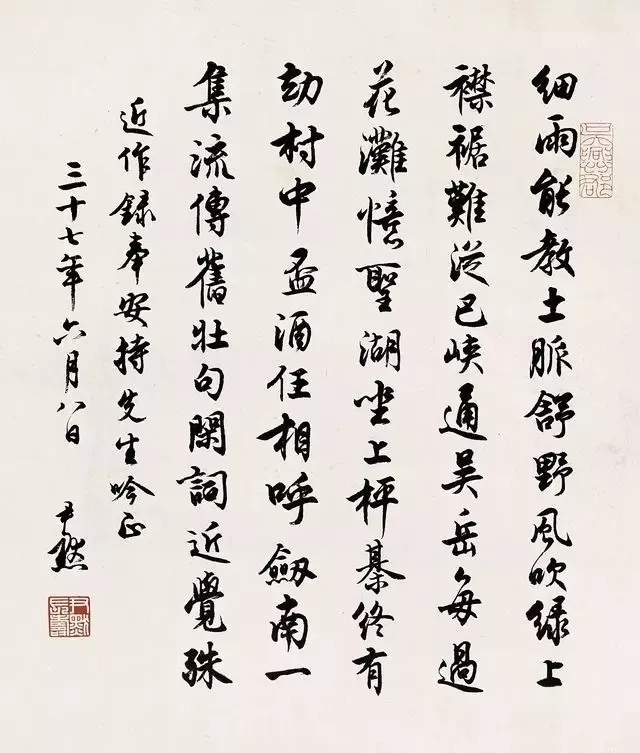 細雨能教土脈舒野風吹緑上
襟裾難從巴峽通吴岳每過
花灘憶聖湖坐上枰棊終有
劫村中盃酒任相呼劔南一
集流傳舊壯句閑詞近覺殊
近作録奉安持先生吟正
三十七年六月八日
尹默